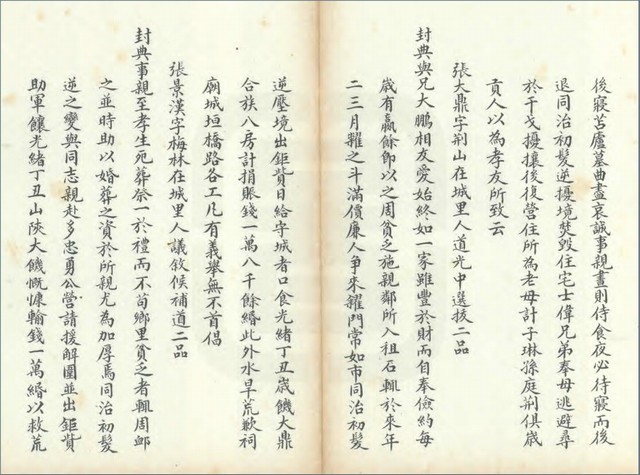 後寢苫廬墓曲盡哀誠事親晝則侍食夜必待寢而後
退同治初髮逆擾境焚毀住宅士偉兄弟奉母逃避尋
於干戈擾攘後復營住所為老母計子琳孫庭荆俱歲
貢人以為孝友所致云
張大鼎字荆山在城里人道光中選拔二品
封典與兄大鵬相友愛始終如一家雖豐於財而自奉儉約每
歲有贏餘卽以之周貧乏施親鄰所入租石輒於來年
二三月糶之斗滿價廉人爭來糴門常如市同治初髮
逆壓境出鉅貲日給守城者口食光緒丁丑歲饑大鼎
合族八房計捐賑錢一萬八千餘緡此外水旱荒歉祠
廟城垣橋路各工凡有義舉無不首倡
張景漢字梅林在城里人議敘候補道二品
封典事親至孝生宛葬祭一於禮而不苟鄉里貧乏者輒周卹
之並時助以婚葬之資於所親尤為加厚焉同治初髮
逆之變與同志親赴多忠勇公營請援解圍並出鉅貲
助軍饟光緒丁丑山陝大饑慨慷輸錢一萬緡以救荒